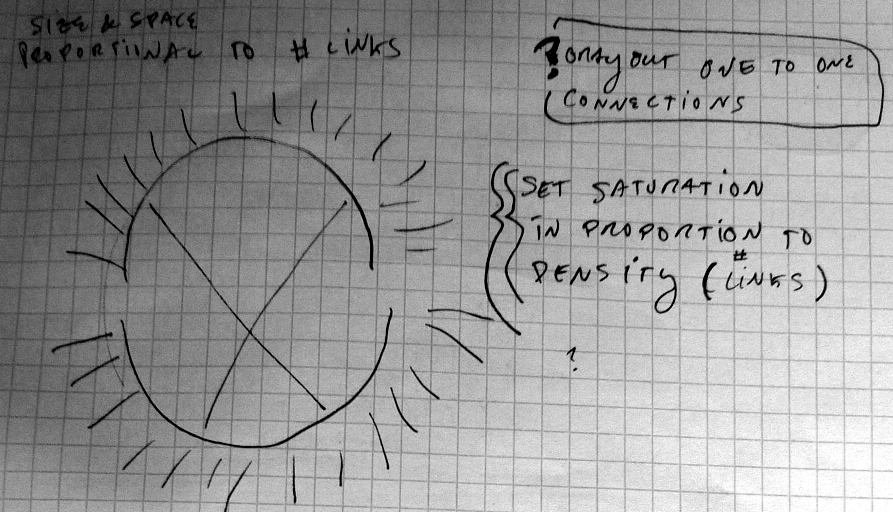 SIZE & SPACE
PROPORTIONAL TO # LINKS
? GRAY OUT ONE TO ONE
CONNECTIONS
SET SATURATION
IN PROPORTION TO
DENSITY (# LINKS)
?